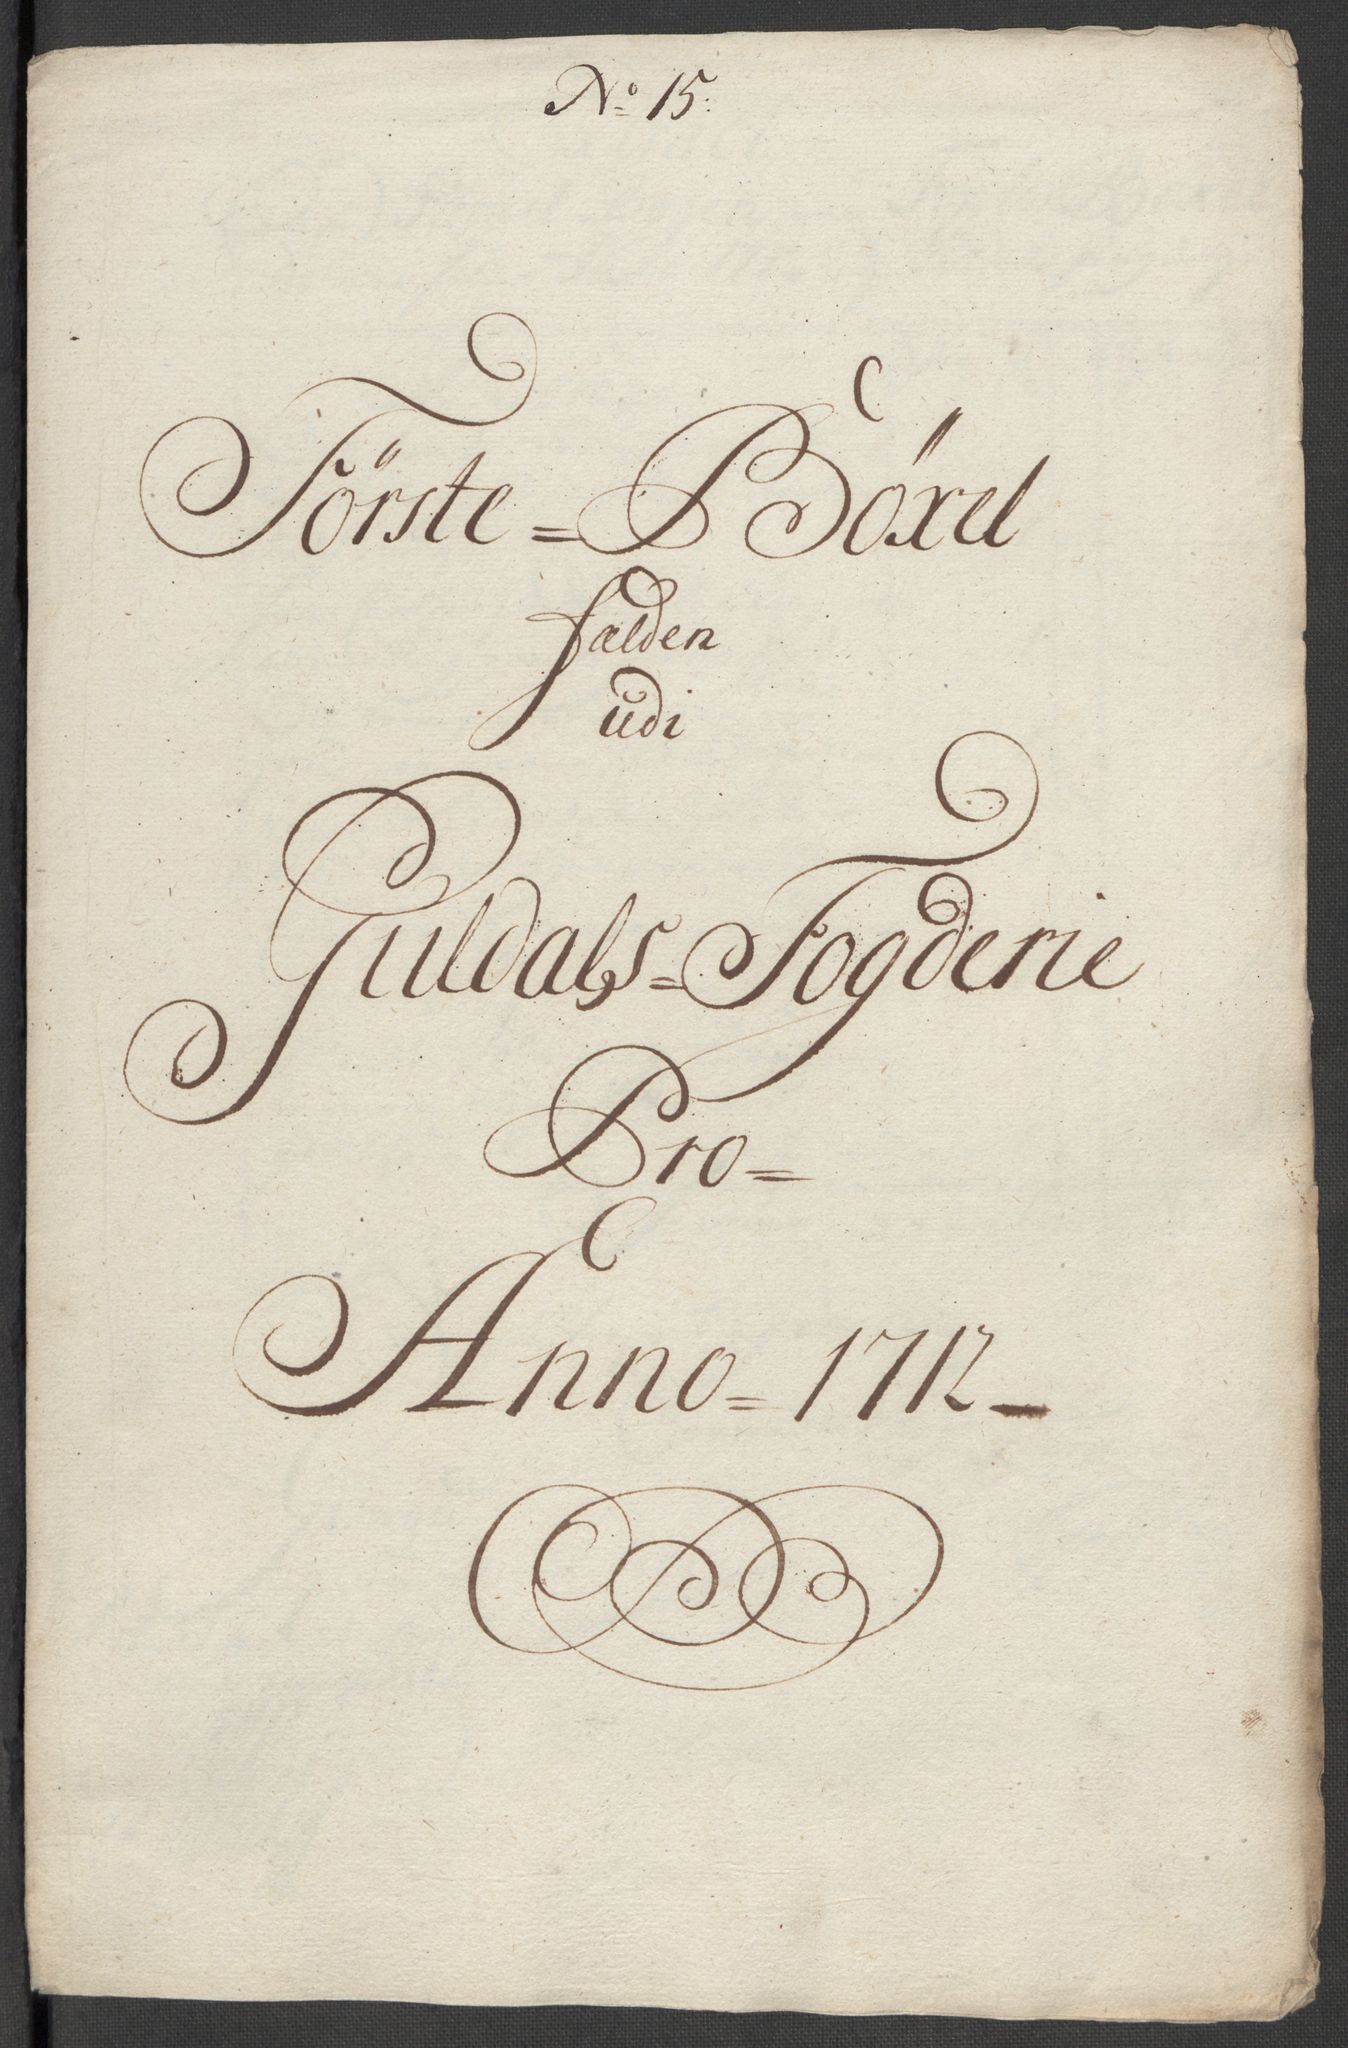 No 15.
Förste = Böxel
falden
udi
Guldals = Fogderie
Pro =
Anno = 1712